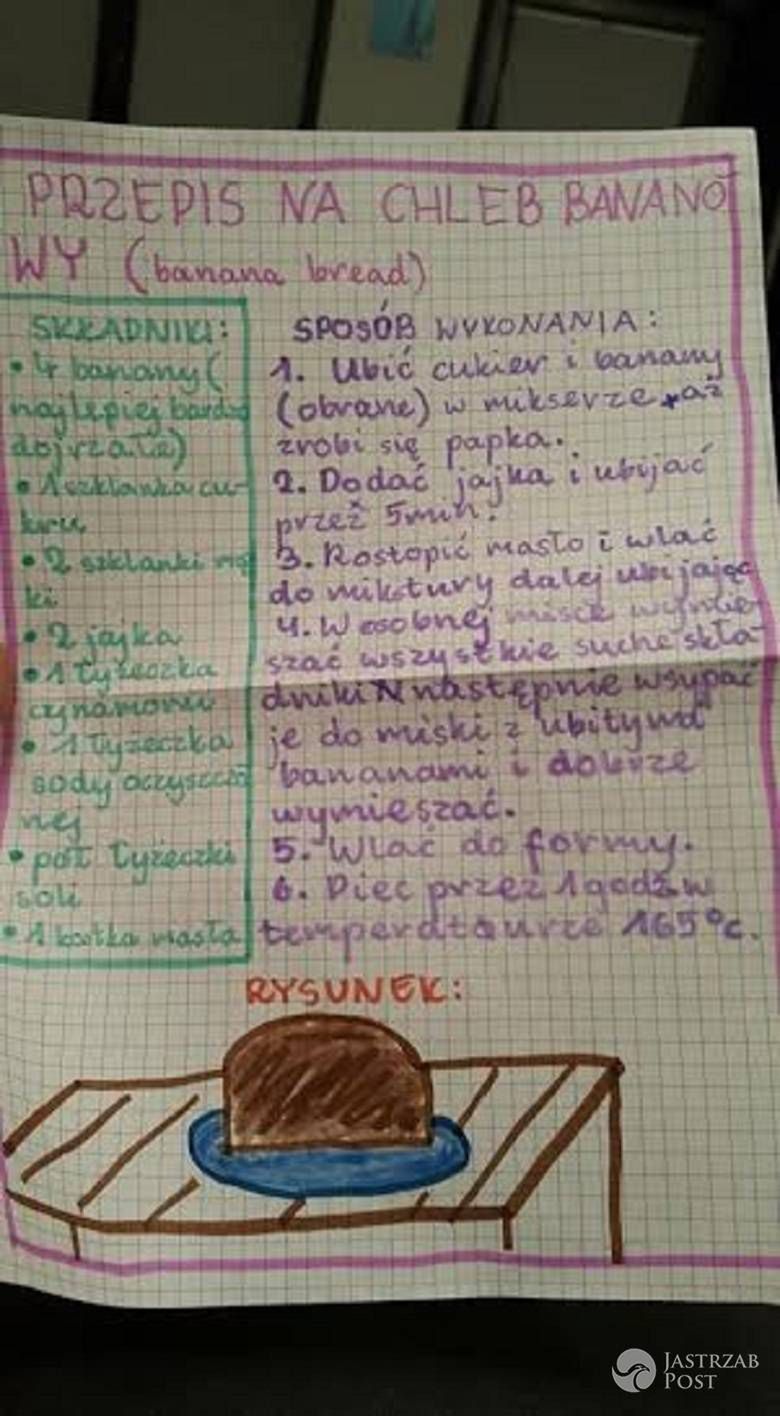 PRZEPIS NA CHLEB BANANO
WY (banana bread)
SKŁADNIKI:
• 4 banany (
najlepiej bardzo
dojrzałe)
• 1 szklanka cu-
kru
• 2 szklanki mą
ki
• 2 jajka
• 1 łyżeczka
cynamonu
• 1 łyżeczka
sody oczyszczo
nej
• pół łyżeczki
soli
• 1 kostka masła
SPOSÓB WYKONANIA:
1. Ubić cukier i banany
(obrane) w mikserze, aż
zrobi się papka.
2. Dodać jajka i ubijać
przez 5min.
3. Rostopić masło i wlać
do mikstury dalej ubijając
4. W osobnej misce wymie
szać wszystkie suche skła-
dniki N następnie wsypać
je do miski z ubitymi
bananami i dobrze
wymieszać.
5. Wlać do formy.
6. Piec przez 1 godź w
temperataurze 165°c.
RYSUNEK:
JASTRZAB
POST